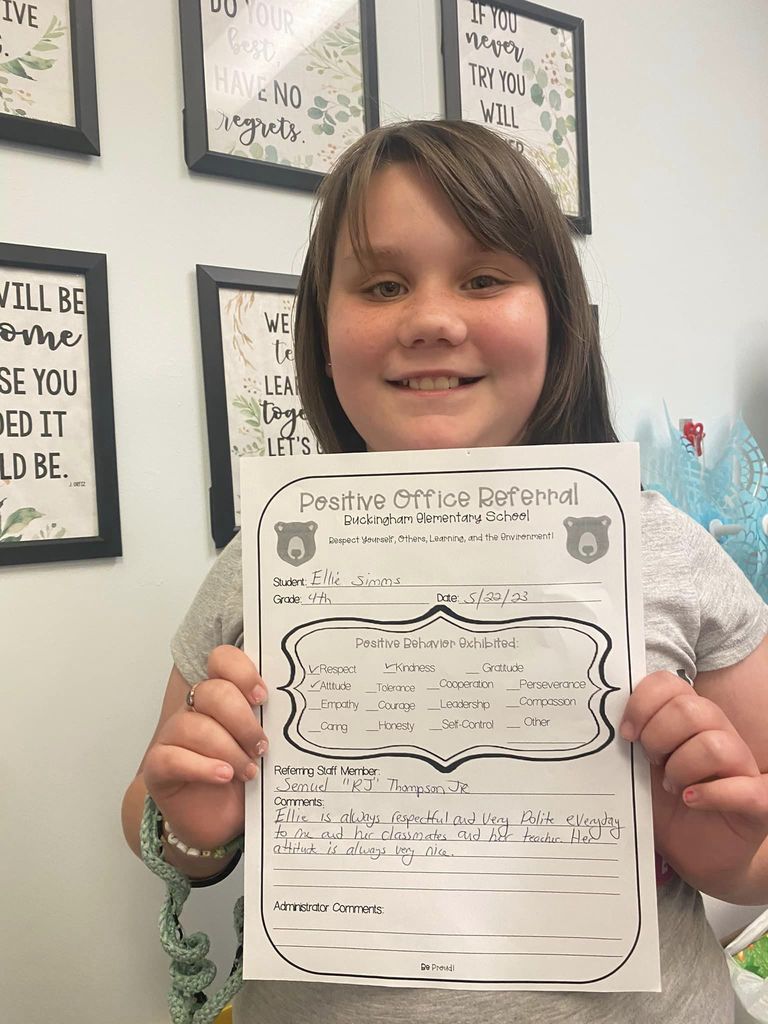 TIVE
S.
DO YOUR
best,
HAVE NO
regrets.
IF YOU
never
TRY YOU
WILL
WILL BE
ome
SE YOU
DED IT
LD BE.
WE
te
LEA
toge
LET'S
Positive Office Referral
Buckingham Elementary School
Respect Yourself, Others, Learning, and the Environment!
Student: Ellie Simms
Grade: 4th Date: 5/22/23
Positive Behavior Exhibited:
✓Respect ✓Kindness __Gratitude
✓Attitude __Tolerance __Cooperation __Perseverance
__Empathy __Courage __Leadership __Compassion
__Caring __Honesty __Self-Control __Other
Referring Staff Member:
Semuel "RJ" Thompson JR
Comments:
Ellie is always respectful and very Polite everyday
to me and her classmates and her teacher. Her
attitude is always very nice.
Administrator Comments:
Be Proud!